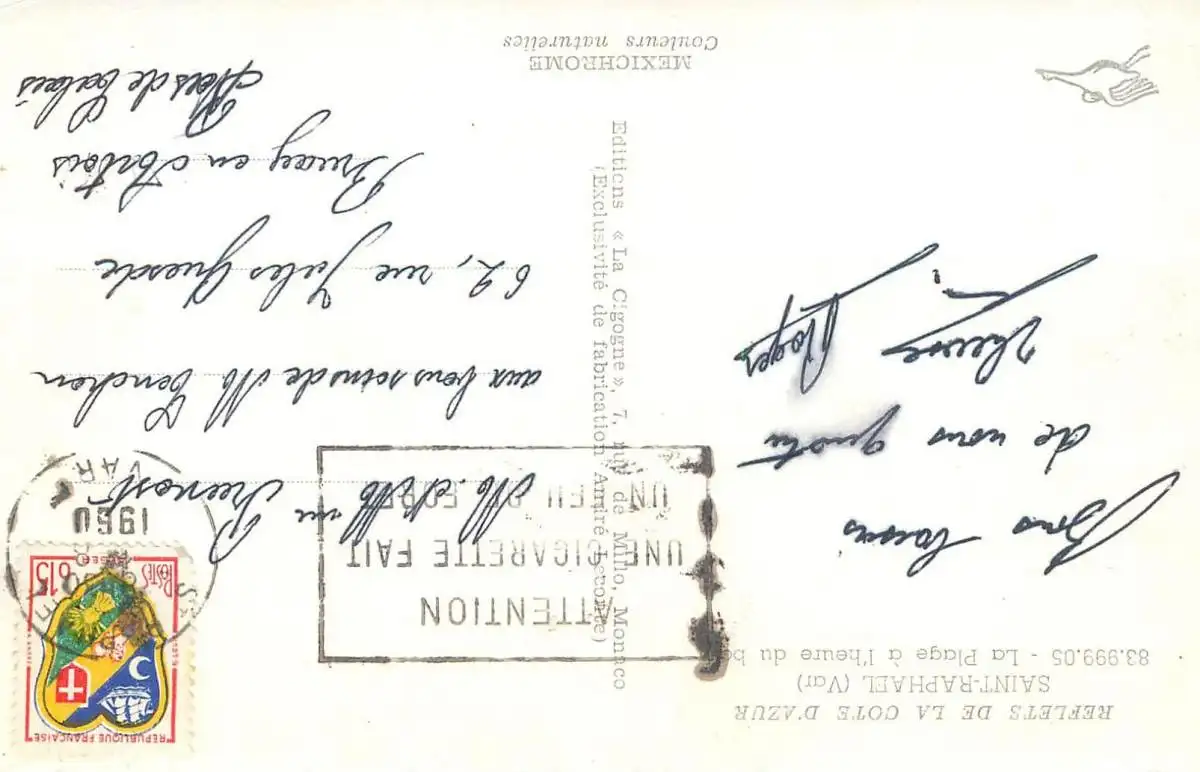 REFLETS DE LA COTE D'AZUR
SAINT-RAPHAEL (Var)
83.999.05 - La Plage à l'heure du
Bons baisers
de nous quatre
Roger
Editions « La Cigogne », 7, rue de Millo, Monaco
(Exclusivité de fabrication André Leconte)
MEXICHROME
Couleurs naturelles
REPUBLIQUE FRANÇAISE
POSTES
0.15
ALGER
VAR
1960
ATTENTION
UNE CIGARETTE FAIT
UN FEU DE FORET
M. et Mme
aux bons soins de M
62, rue Jules Guesde
Bruay en Artois
Pas de Calais